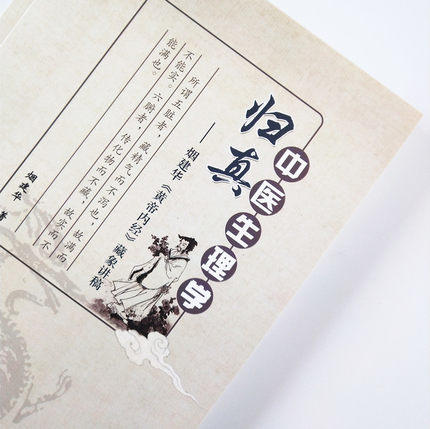 中医生理学
归真
——烟建华《黄帝内经》藏象讲稿
所谓五脏者，藏精气而不泻也，故满而
不能实。六腑者，传化物而不藏，故实而不
能满也。
烟建华 著